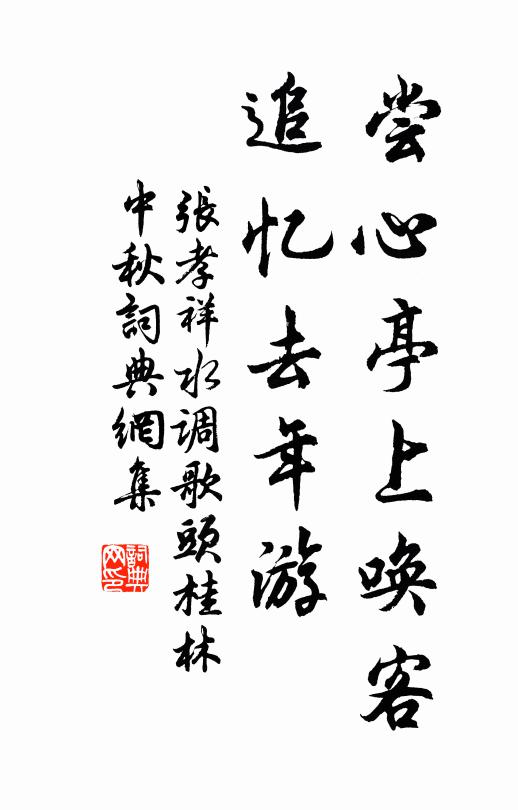 尝心亭上唤客
追忆去年游
張孝祥水调歌頭桂林
中秋詞典網集
詞典網印